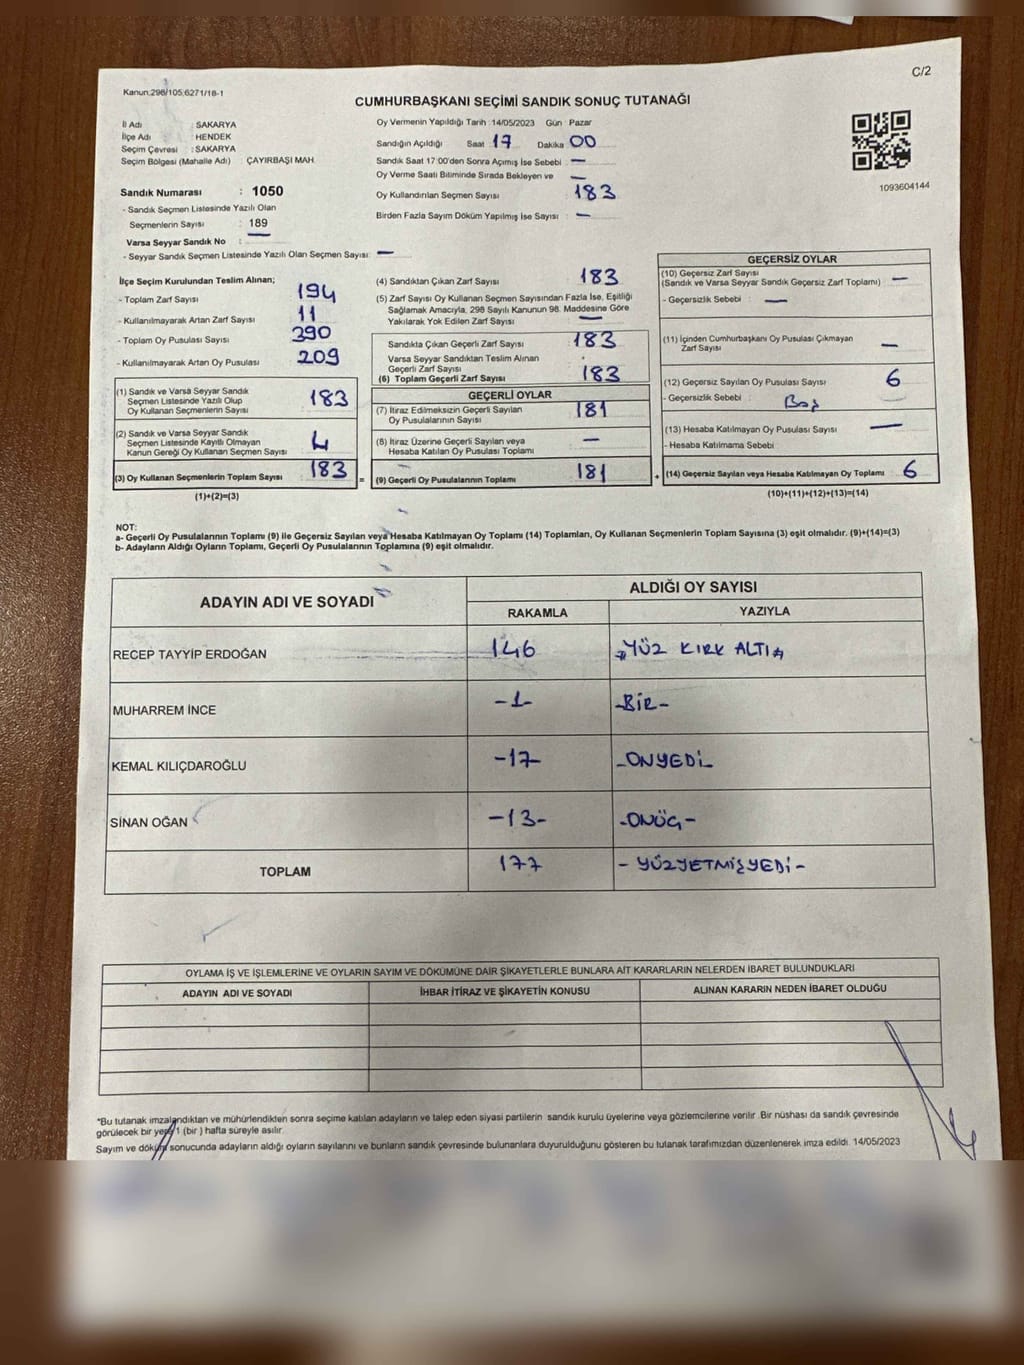 C/2
Kanun:298/105,6271/18-1
CUMHURBAŞKANI SEÇİMİ SANDIK SONUÇ TUTANAĞI
İl Adı : SAKARYA
İlçe Adı : HENDEK
Seçim Çevresi : SAKARYA
Seçim Bölgesi (Mahalle Adı) : ÇAYIRBAŞI MAH.
Sandık Numarası : 1050
- Sandık Seçmen Listesinde Yazılı Olan
Seçmenlerin Sayısı : 189
Varsa Seyyar Sandık No :
- Seyyar Sandık Seçmen Listesinde Yazılı Olan Seçmen Sayısı: —
Oy Vermenin Yapıldığı Tarih :14/05/2023 Gün : Pazar
Sandığın Açıldığı Saat 17 Dakika 00
Sandık Saat 17:00'den Sonra Açımış İse Sebebi : —
Oy Verme Saati Bitiminde Sırada Bekleyen ve —
Oy Kullandırılan Seçmen Sayısı : 183
Birden Fazla Sayım Döküm Yapılmış İse Sayısı : —
1093604144
İlçe Seçim Kurulundan Teslim Alınan;
- Toplam Zarf Sayısı 194
- Kullanılmayarak Artan Zarf Sayısı 11
- Toplam Oy Pusulası Sayısı 390
- Kullanılmayarak Artan Oy Pusulası 209
(1) Sandık ve Varsa Seyyar Sandık
Seçmen Listesinde Yazılı Olup
Oy Kullanan Seçmenlerin Sayısı 183
(2) Sandık ve Varsa Seyyar Sandık
Seçmen Listesinde Kayıtlı Olmayan
Kanun Gereği Oy Kullanan Seçmen Sayısı 4
(3) Oy Kullanan Seçmenlerin Toplam Sayısı 183 =
(1)+(2)=(3)
(4) Sandıktan Çıkan Zarf Sayısı 183
(5) Zarf Sayısı Oy Kullanan Seçmen Sayısından Fazla İse, Eşitliği
Sağlamak Amacıyla, 298 Sayılı Kanunun 98. Maddesine Göre
Yakılarak Yok Edilen Zarf Sayısı —
Sandıkta Çıkan Geçerli Zarf Sayısı : 183
Varsa Seyyar Sandıktan Teslim Alınan
Geçerli Zarf Sayısı
(6) Toplam Geçerli Zarf Sayısı : 183
GEÇERLİ OYLAR
(7) İtiraz Edilmeksizin Geçerli Sayılan
Oy Pusulalarının Sayısı 181
(8) İtiraz Üzerine Geçerli Sayılan veya
Hesaba Katılan Oy Pusulası Toplamı —
(9) Geçerli Oy Pusulalarının Toplamı 181 +
GEÇERSİZ OYLAR
(10) Geçersiz Zarf Sayısı
(Sandık ve Varsa Seyyar Sandık Geçersiz Zarf Toplamı) : —
- Geçersizlik Sebebi : —
(11) İçinden Cumhurbaşkanı Oy Pusulası Çıkmayan
Zarf Sayısı —
(12) Geçersiz Sayılan Oy Pusulası Sayısı : 6
- Geçersizlik Sebebi : Boş
(13) Hesaba Katılmayan Oy Pusulası Sayısı : —
- Hesaba Katılmama Sebebi
(14) Geçersiz Sayılan veya Hesaba Katılmayan Oy Toplamı : 6
(10)+(11)+(12)+(13)=(14)
NOT:
a- Geçerli Oy Pusulalarının Toplamı (9) ile Geçersiz Sayılan veya Hesaba Katılmayan Oy Toplamı (14) Toplamları, Oy Kullanan Seçmenlerin Toplam Sayısına (3) eşit olmalıdır. (9)+(14)=(3)
b- Adayların Aldığı Oyların Toplamı, Geçerli Oy Pusulalarının Toplamına (9) eşit olmalıdır.
ADAYIN ADI VE SOYADI
ALDIĞI OY SAYISI
RAKAMLA YAZIYLA
RECEP TAYYİP ERDOĞAN 146 YÜZ KIRK ALTI
MUHARREM İNCE -1- -BİR-
KEMAL KILIÇDAROĞLU -17- -ONYEDİ-
SİNAN OĞAN -13- -ONÜÇ-
TOPLAM 177 -YÜZYETMİŞYEDİ-
OYLAMA İŞ VE İŞLEMLERİNE VE OYLARIN SAYIM VE DÖKÜMÜNE DAİR ŞİKAYETLERLE BUNLARA AİT KARARLARIN NELERDEN İBARET BULUNDUKLARI
ADAYIN ADI VE SOYADI İHBAR İTİRAZ VE ŞİKAYETİN KONUSU ALINAN KARARIN NEDEN İBARET OLDUĞU
*Bu tutanak imzalandıktan ve mühürlendikten sonra seçime katılan adayların ve talep eden siyasi partilerin sandık kurulu üyelerine veya gözlemcilerine verilir .Bir nüshası da sandık çevresinde
görülecek bir yere 1 (bir ) hafta süreyle asılır.
Sayım ve döküm sonucunda adayların aldığı oyların sayılarını ve bunların sandık çevresinde bulunanlara duyurulduğunu gösteren bu tutanak tarafımızdan düzenlenerek imza edildi. 14/05/2023